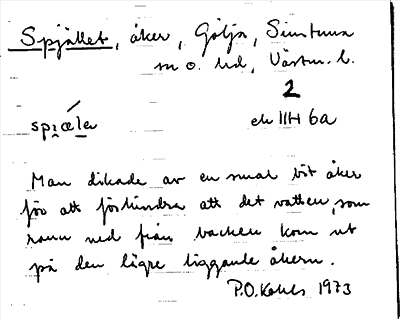 Spjället, åker, Gölja, Simtuna
sn o. hd, Västm. l.
2
ek 11H 6a
Man dikade av en smal bit åker
för att förhindra att det vatten, som
rann ned från backen kom ut
på den lägre liggande åkern.
P.O. 1973